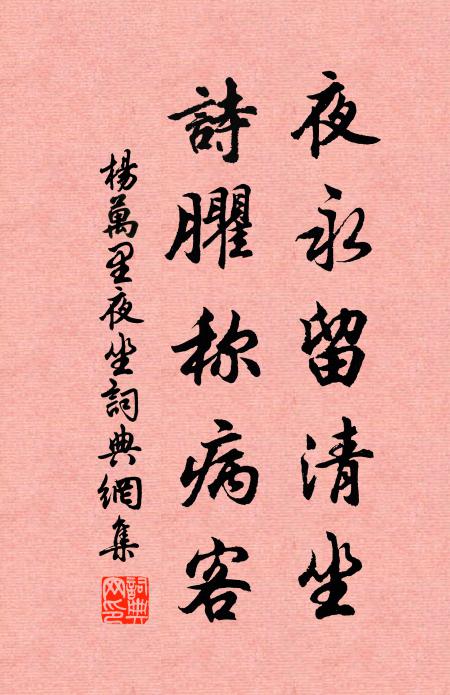 夜永留清坐
詩臞称病客
楊萬里夜坐詞典網集
詞典網印